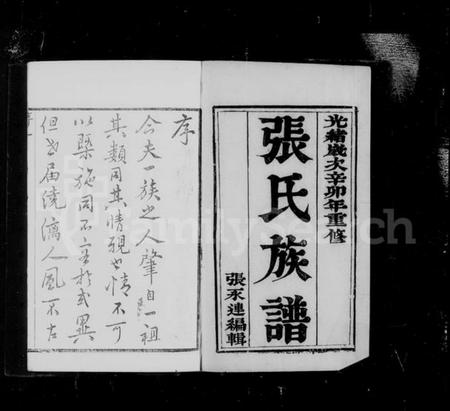 光緒歲次辛卯年重修
張氏族譜
張永連編輯
序
今夫一族之人肇自一祖
其類用其情親也情不可
以槩施同不容於或異
但世届澆漓人風不古
FamilySearch